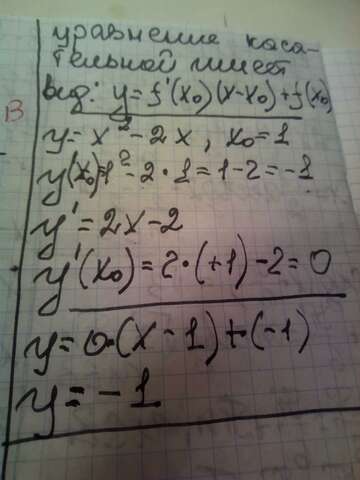 уравнение каса-
тельной имеет
вид: y=f'(x₀)(x-x₀)+f(x₀)
В
y=x²-2x, x₀=1
y(x₀)=1²-2·1=1-2=-1
y'=2x-2
y'(x₀)=2·(+1)-2=0
y=0·(x-1)+(-1)
y=-1